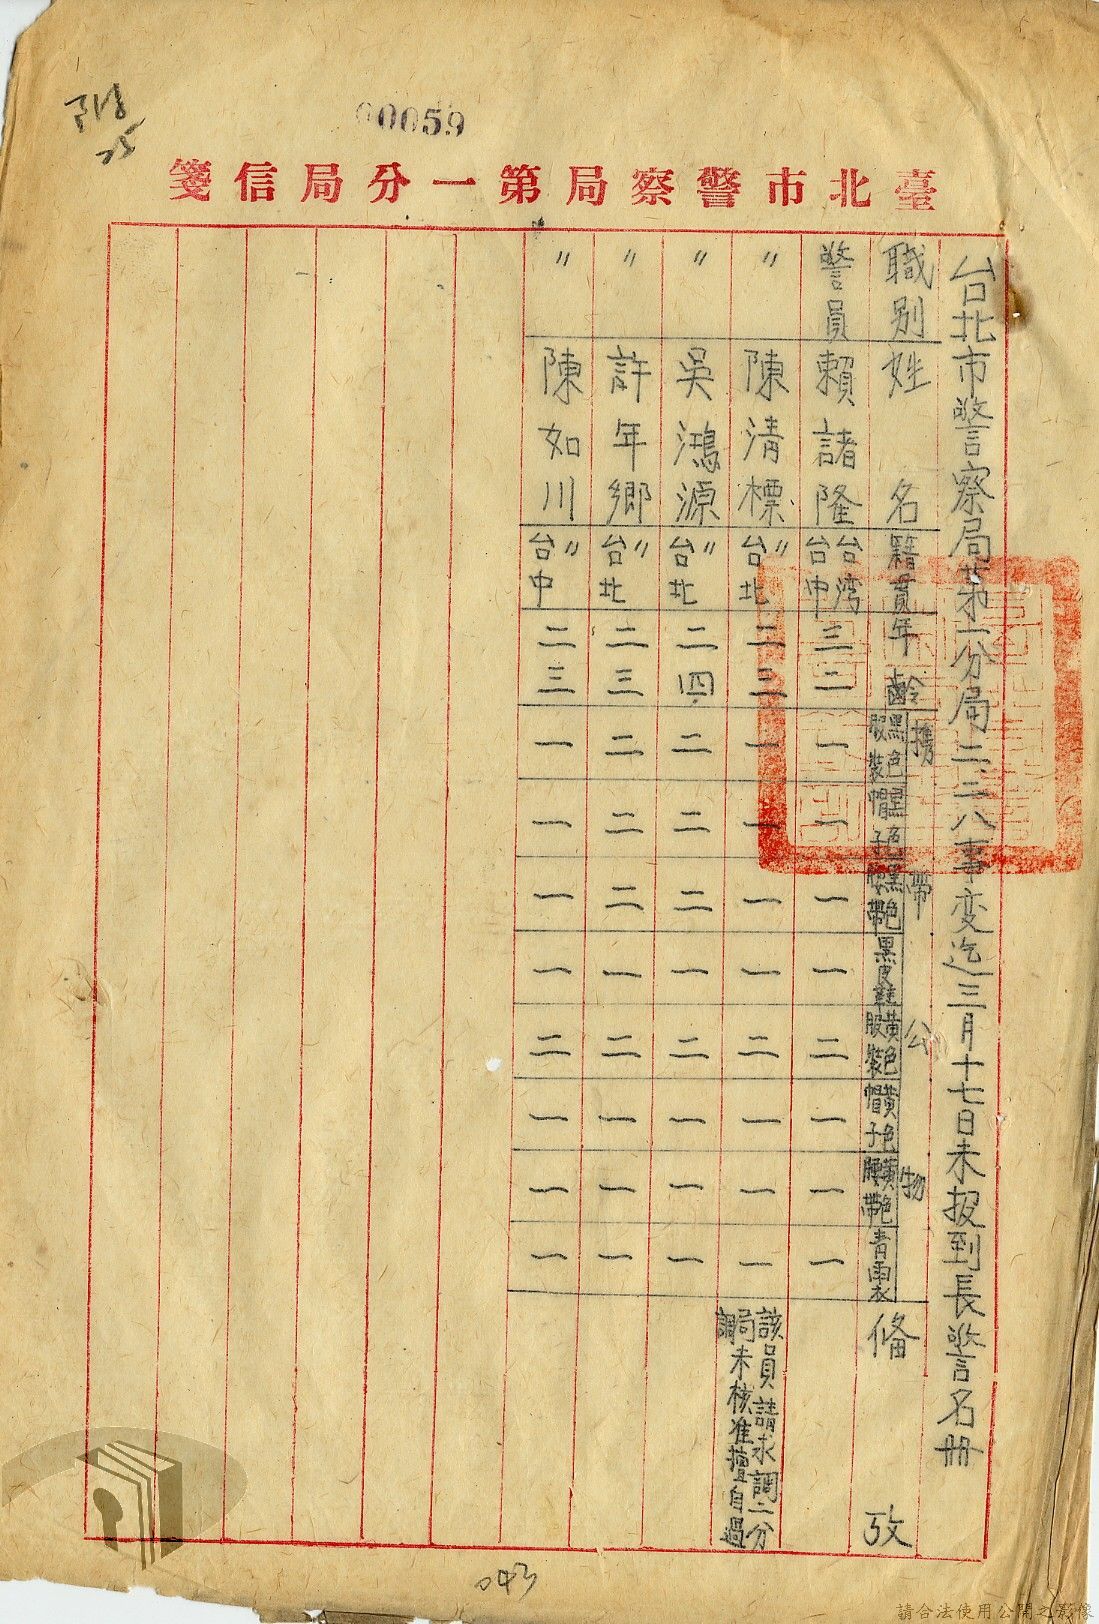 00059
臺北市警察局第一分局信箋
台北市警察局第一分局二.二八事变迄三月十七日未报到長警名冊
職别 姓名 籍貫 年齡 攜帶公物 俻攷
黑色服裝 黑色帽子 黑色腰帶 黑皮鞋 黃色服裝 黃色帽子 黃色腰帶 青雨衣
警員 賴諸隆 台湾台中 三二 一 一 一 一 二 一 一 一
〃 陳清標 〃台北 二三 一 一 一 一 二 一 一 一 該員請求調二分局未核准擅自過調
〃 吳鴻源 〃台北 二四 二 二 二 一 二 一 一 一
〃 許年鄉 〃台北 二三 二 二 二 一 二 一 一 一
〃 陳如川 〃台中 二三 一 一 一 一 二 一 一 一
043
請合法使用公開之影像